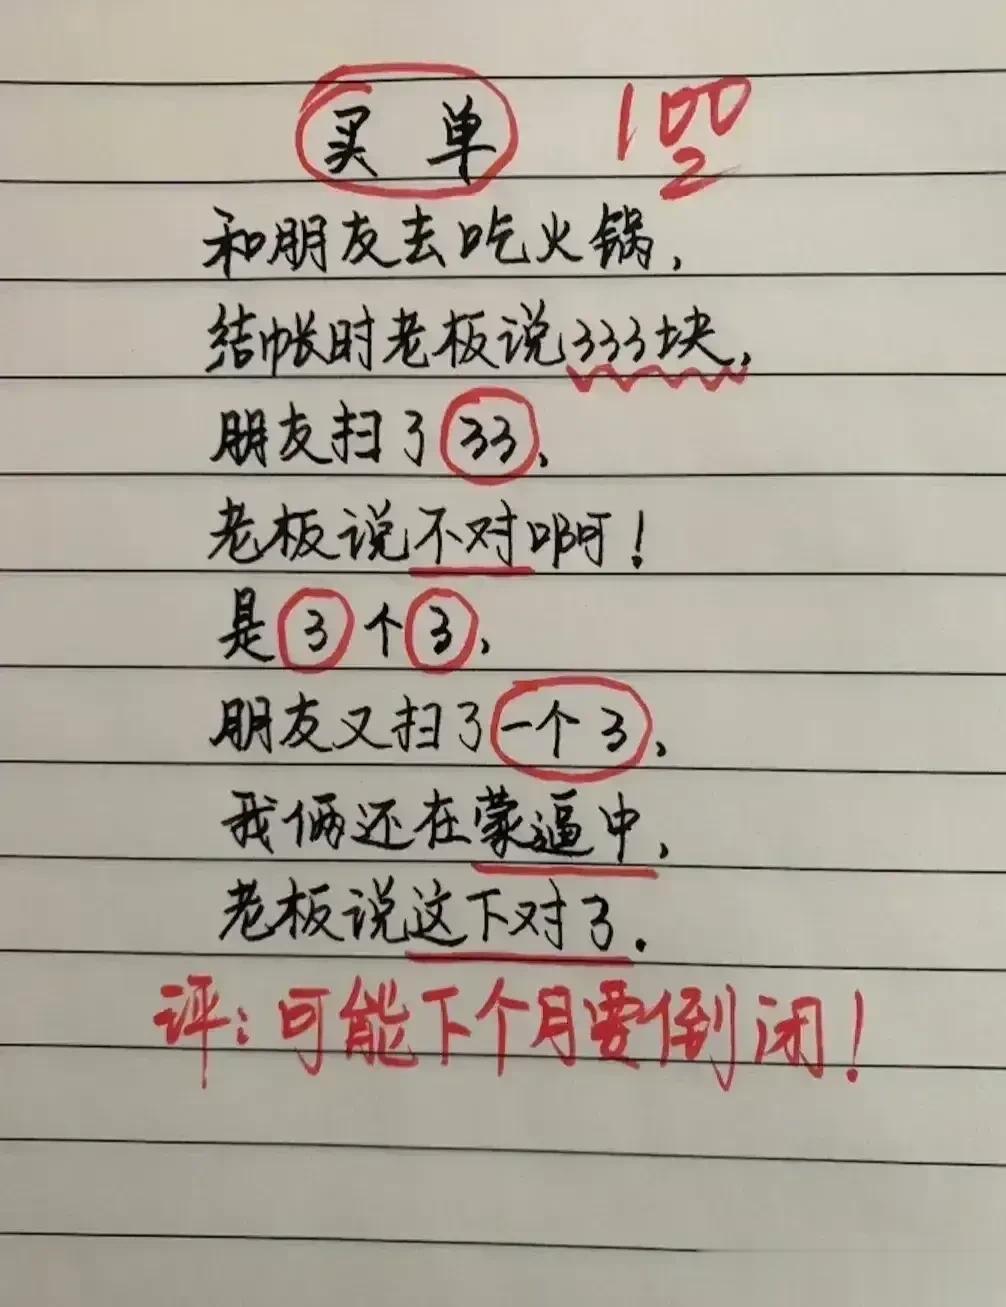 买单 100
和朋友去吃火锅,
结帐时老板说333块,
朋友扫了33,
老板说不对啊!
是3个3,
朋友又扫了一个3,
我俩还在蒙逼中,
老板说这下对了.
评:可能下个月要倒闭!